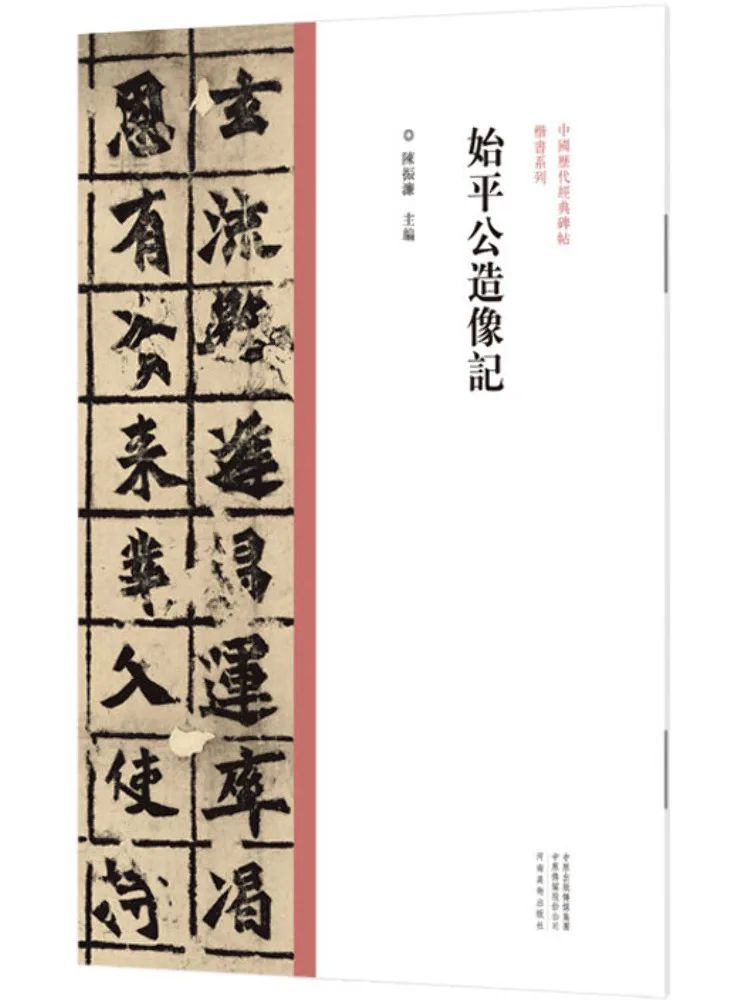 中國歷代經典碑帖
楷書系列
始平公造像記
◎ 陳振濂 主編
中原出版傳媒集團
中原傳媒股份公司
河南美術出版社
玄流邀逢昌運率竭
恩有資來業父使持